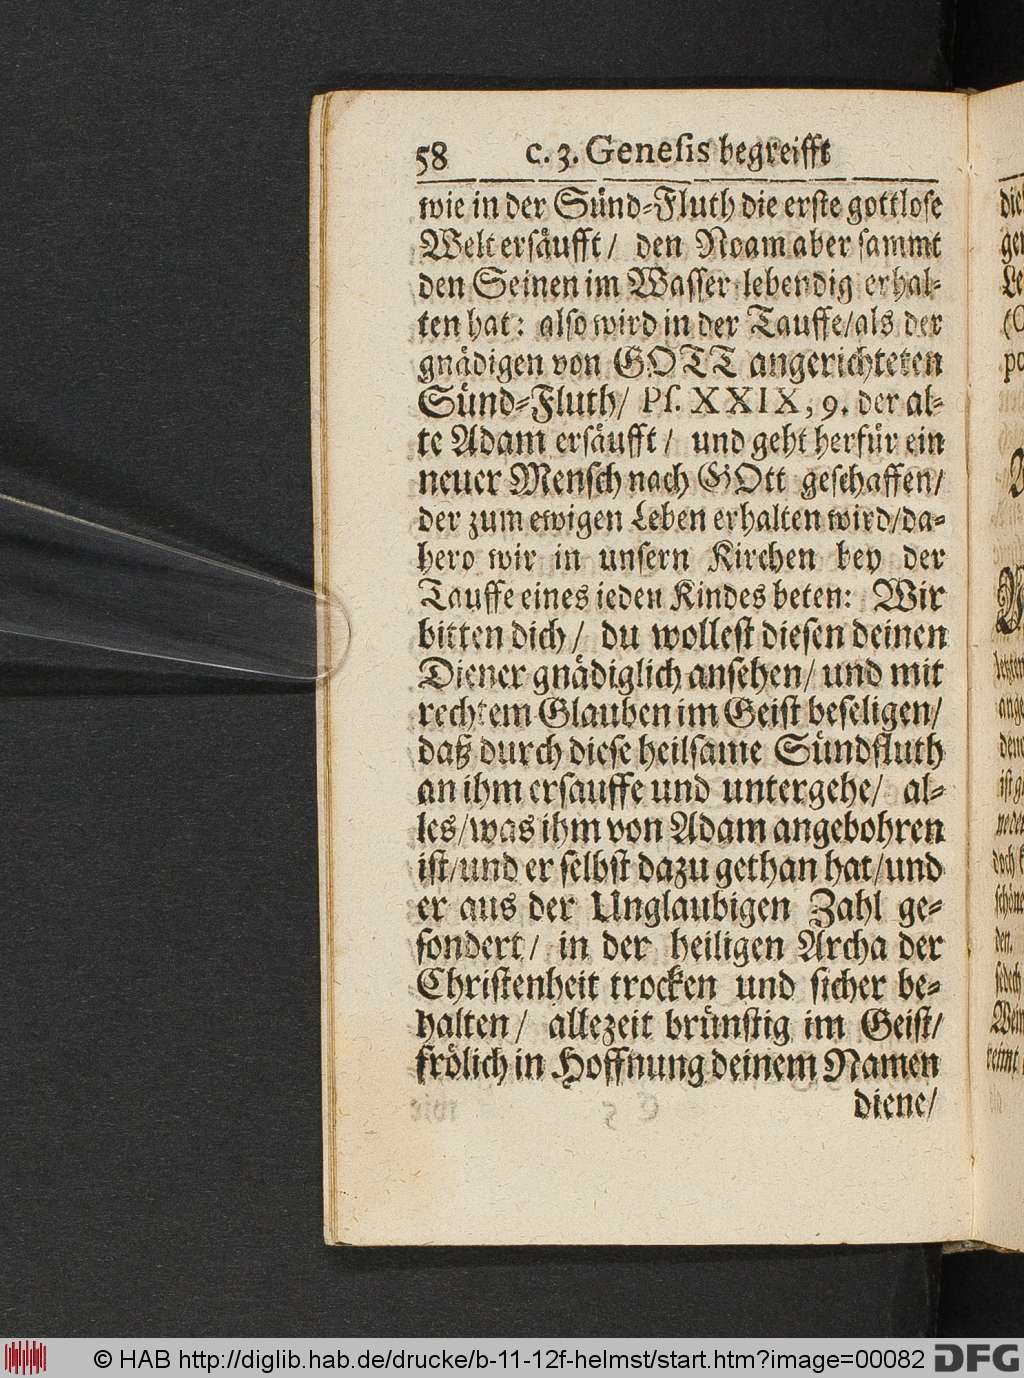 58 c. 3. Genesis begreifft
wie in der Sünd-Fluth die erste gottlose
Welt ersäufft/ den Noam aber sammt
den Seinen im Wasser lebendig erhal-
ten hat: also wird in der Tauffe/als der
gnädigen von GOTT angerichteten
Sünd-Fluth/ Ps. XXIX, 9. der al-
te Adam ersäufft/ und geht herfür ein
neuer Mensch nach GOtt geschaffen/
der zum ewigen Leben erhalten wird/da-
hero wir in unsern Kirchen bey der
Tauffe eines ieden Kindes beten: Wir
bitten dich/ du wollest diesen deinen
Diener gnädiglich ansehen/ und mit
rechtem Glauben im Geist beseligen/
daß durch diese heilsame Sündfluth
an ihm ersauffe und untergehe/ al-
les/was ihm von Adam angebohren
ist/und er selbst dazu gethan hat/und
er aus der Unglaubigen Zahl ge-
sondert/ in der heiligen Archa der
Christenheit trocken und sicher be-
halten/ allezeit brünstig im Geist/
frölich in Hoffnung deinem Namen
diene/
© HAB http://diglib.hab.de/drucke/b-11-12f-helmst/start.htm?image=00082 DFG